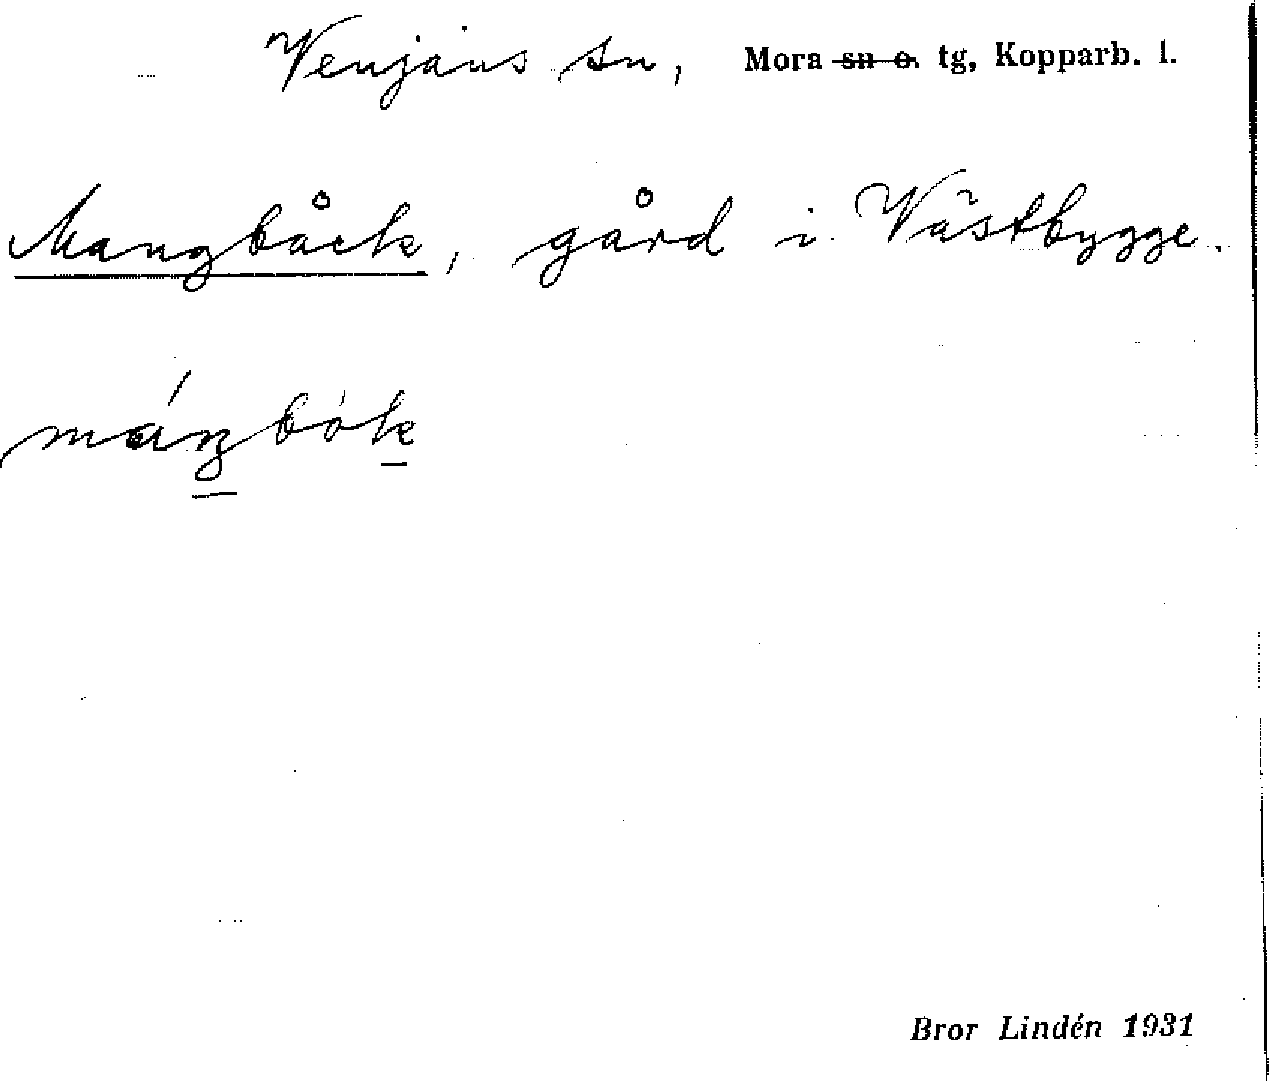 Venjans sn, Mora sn o. tg, Kopparb. l.
Mangbåck, gård i Västbygge.
Bror Lindén 1931